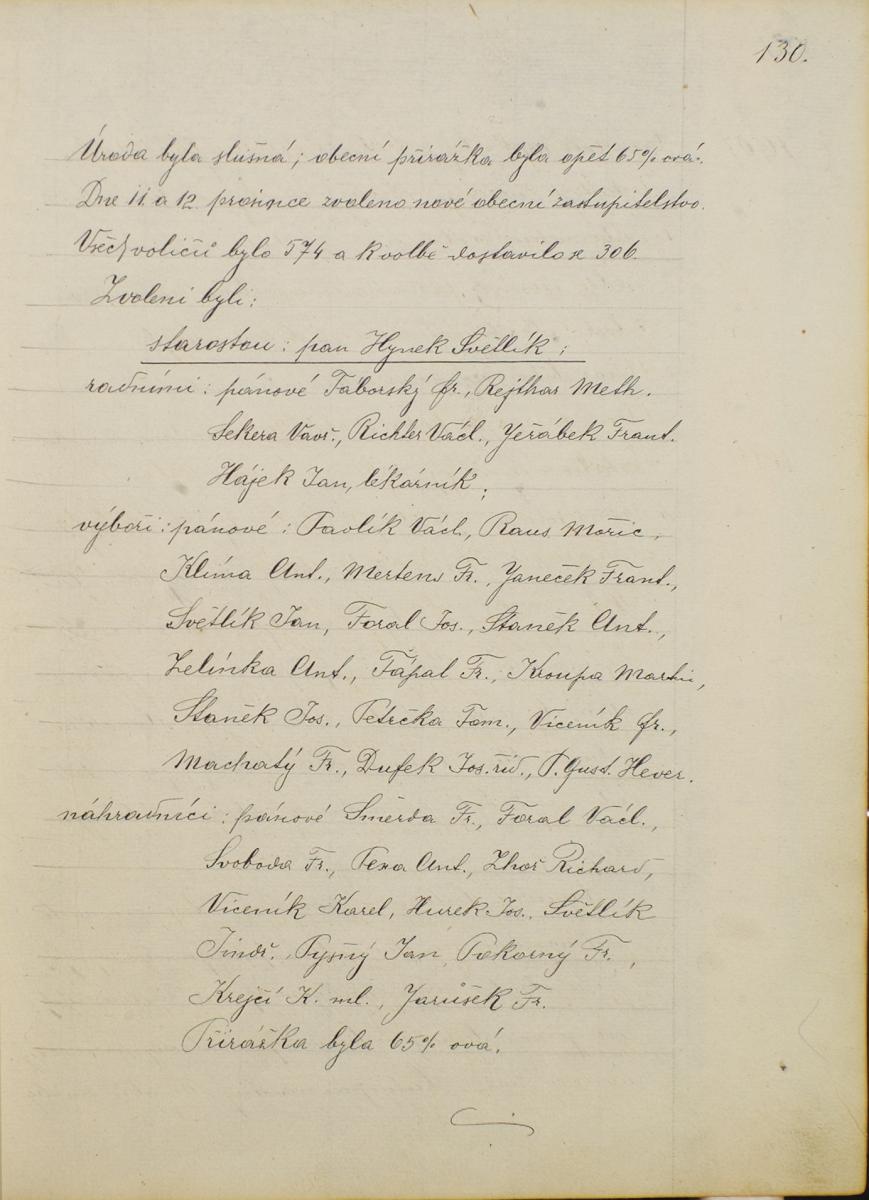 130.
Úroda byla slušná; obecní přirážka byla opět 65% ová.
Dne 11. a 12. prosince zvoleno nové obecní zastupitelstvo.
Všech voličů bylo 574 a k volbě dostavilo se 306.
Zvoleni byli:
starostou: pan Hynek Světlík;
radními: pánové Táborský Fr., Rejthar Meth.
Sekera Vavř., Richter Václ., Jeřábek Frant.
Hájek Jan, lékárník;
výboři: pánové: Pavlík Václ., Raus Mořic,
Klíma Ant., Mertens Fr., Janeček Frant.,
Světlík Jan, Foral Jos., Staněk Ant.,
Zelinka Ant., Fápal Fr., Kroupa Martin,
Staněk Jos., Petrčka Tom., Viceník Fr.,
Machatý Fr., Dufek Jos. říd., P. Gust. Hever.
náhradníci: pánové Smérda Fr., Foral Václ.,
Svoboda Fr., Pexa Ant., Zhoř Richard,
Viceník Karel, Hurek Jos., Světlík
Jindř., Pyšný Jan, Pokorný Fr.,
Krejčí K. ml., Jarůšek Fr.
Přirážka byla 65% ová.